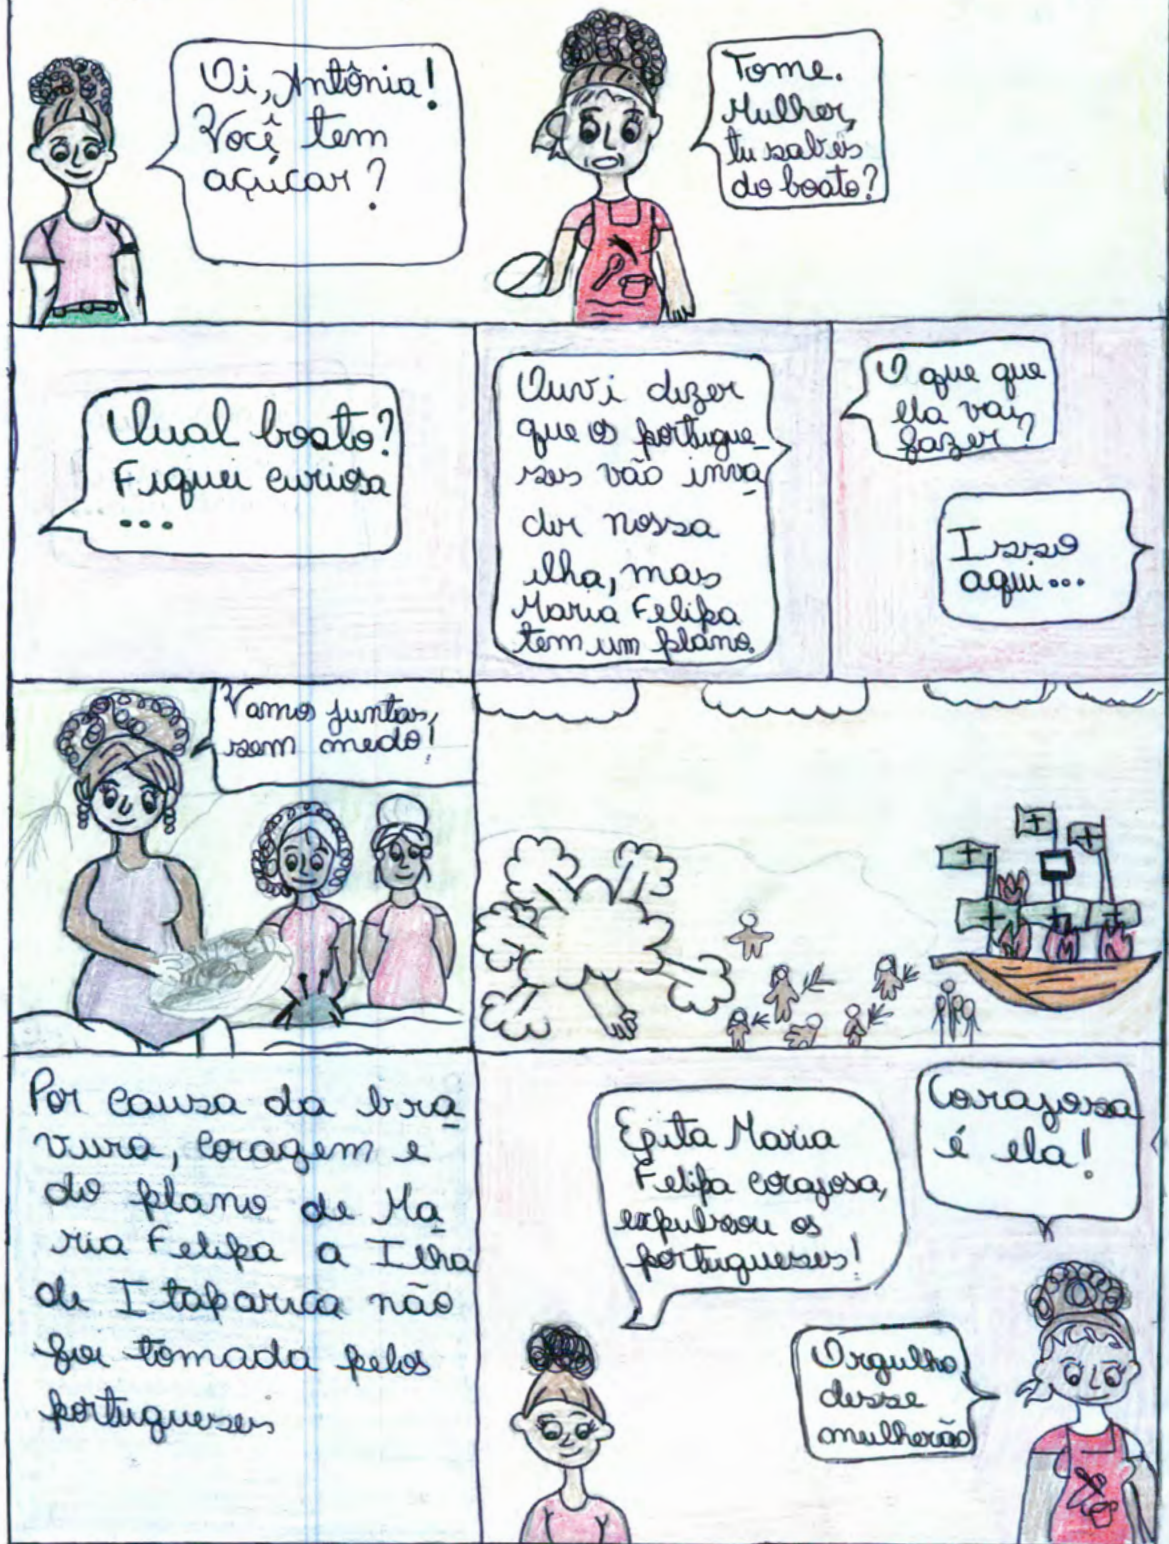 Oi, Antônia!
Você tem
açúcar?
Tome.
Mulher,
tu sabes
do boato?
Qual boato?
Fiquei curiosa
...
Ouvi dizer
que os portugue_
ses vão inva_
dir nossa
ilha, mas
Maria Felipa
tem um plano.
O que que
ela vai
fazer?
Isso
aqui...
Vamos juntas,
sem medo!
Por causa da bra_
vura, coragem e
do plano de Ma_
ria Felipa a Ilha
de Itaparica não
foi tomada pelos
portugueses
Egita Maria
Felipa corajosa,
expulsou os
portugueses!
Corajosa
é ela!
Orgulho
desse
mulherão